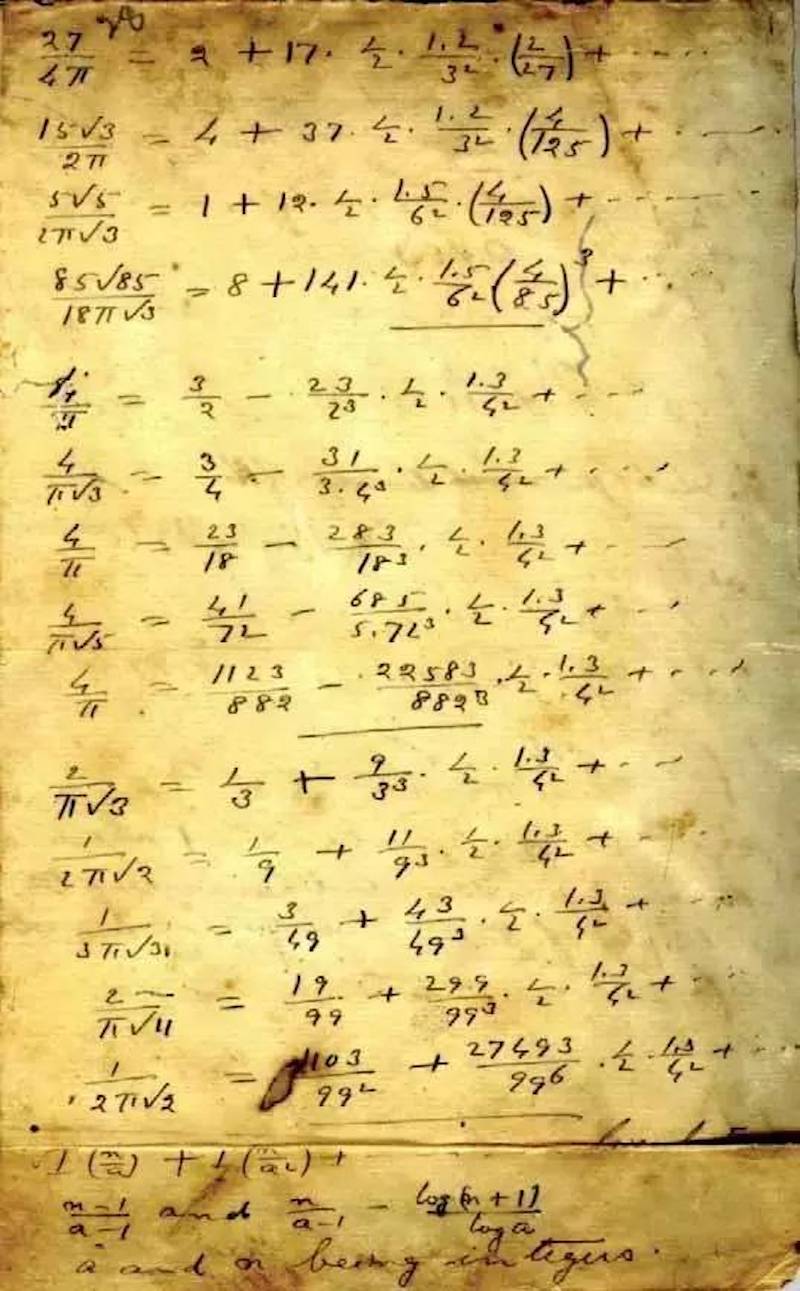 27/4π = 2 + 17. 1/2. 1.2/3². (2/27) + ....
15√3/2π = 4 + 37. 1/2. 1.2/3². (4/125) + ....
5√5/2π√3 = 1 + 12. 1/2. 1.5/6². (4/125) + ....
85√85/18π√3 = 8 + 141. 1/2. 1.5/6² (4/85)³ + ....
4/π = 3/2 - 23/2³. 1/2. 1.3/4² + ....
4/π√3 = 3/4 - 31/3.4³. 1/2. 1.3/4² + ....
4/π = 23/18 - 283/18³. 1/2. 1.3/4² + ....
4/π√5 = 41/72 - 685/5.72³. 1/2. 1.3/4² + ....
4/π = 1123/882 - 22583/882³. 1/2. 1.3/4² + ....
2/π√3 = 1/3 + 9/3³. 1/2. 1.3/4² + ....
1/2π√2 = 1/9 + 11/9³. 1/2. 1.3/4² + ....
1/3π√3 = 3/49 + 43/49³. 1/2. 1.3/4² + ....
2/π√11 = 19/99 + 299/99³. 1/2. 1.3/4² + ....
1/2π√2 = 1103/99² + 27493/99⁶. 1/2. 1.3/4² + ....
1(n/a) + 1(n/a²) +
n-1/a-1 and n/a-1 - log(n+1)/log a
a and n being integers.